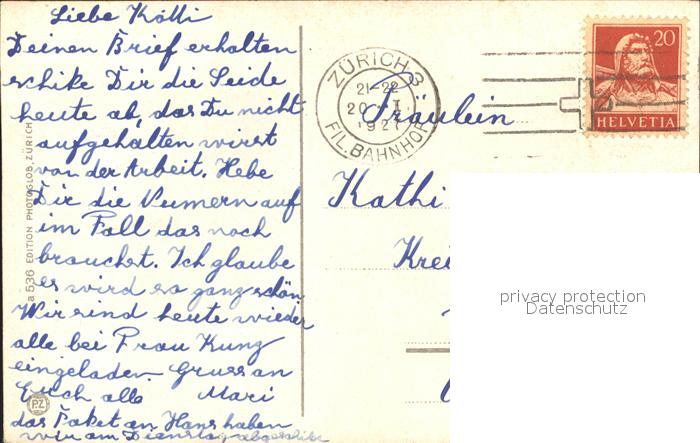 Liebe Kötti
Deinen Brief erhalten
schike Dir die Seide
heute ab, das Du nicht
aufgehalten wirst
von der Arbeit. Hebe
Dir die Numern auf
im Fall das noch
brauchst. Ich glaube
es wird so ganz schön
Wir sind heute wieder
alle bei Frau Kunz
eingeladen Gruss an
Euch alle Mari
das Paket an Hans haben
wir am Dienstag abgeschikt
a 536 EDITION PHOTOGLOB, ZÜRICH
PZ
ZÜRICH 3
21-22
20 I
1927
FIL. BAHNHOF
20
HELVETIA
Fräulein
Kathi
Krei
privacy protection
Datenschutz